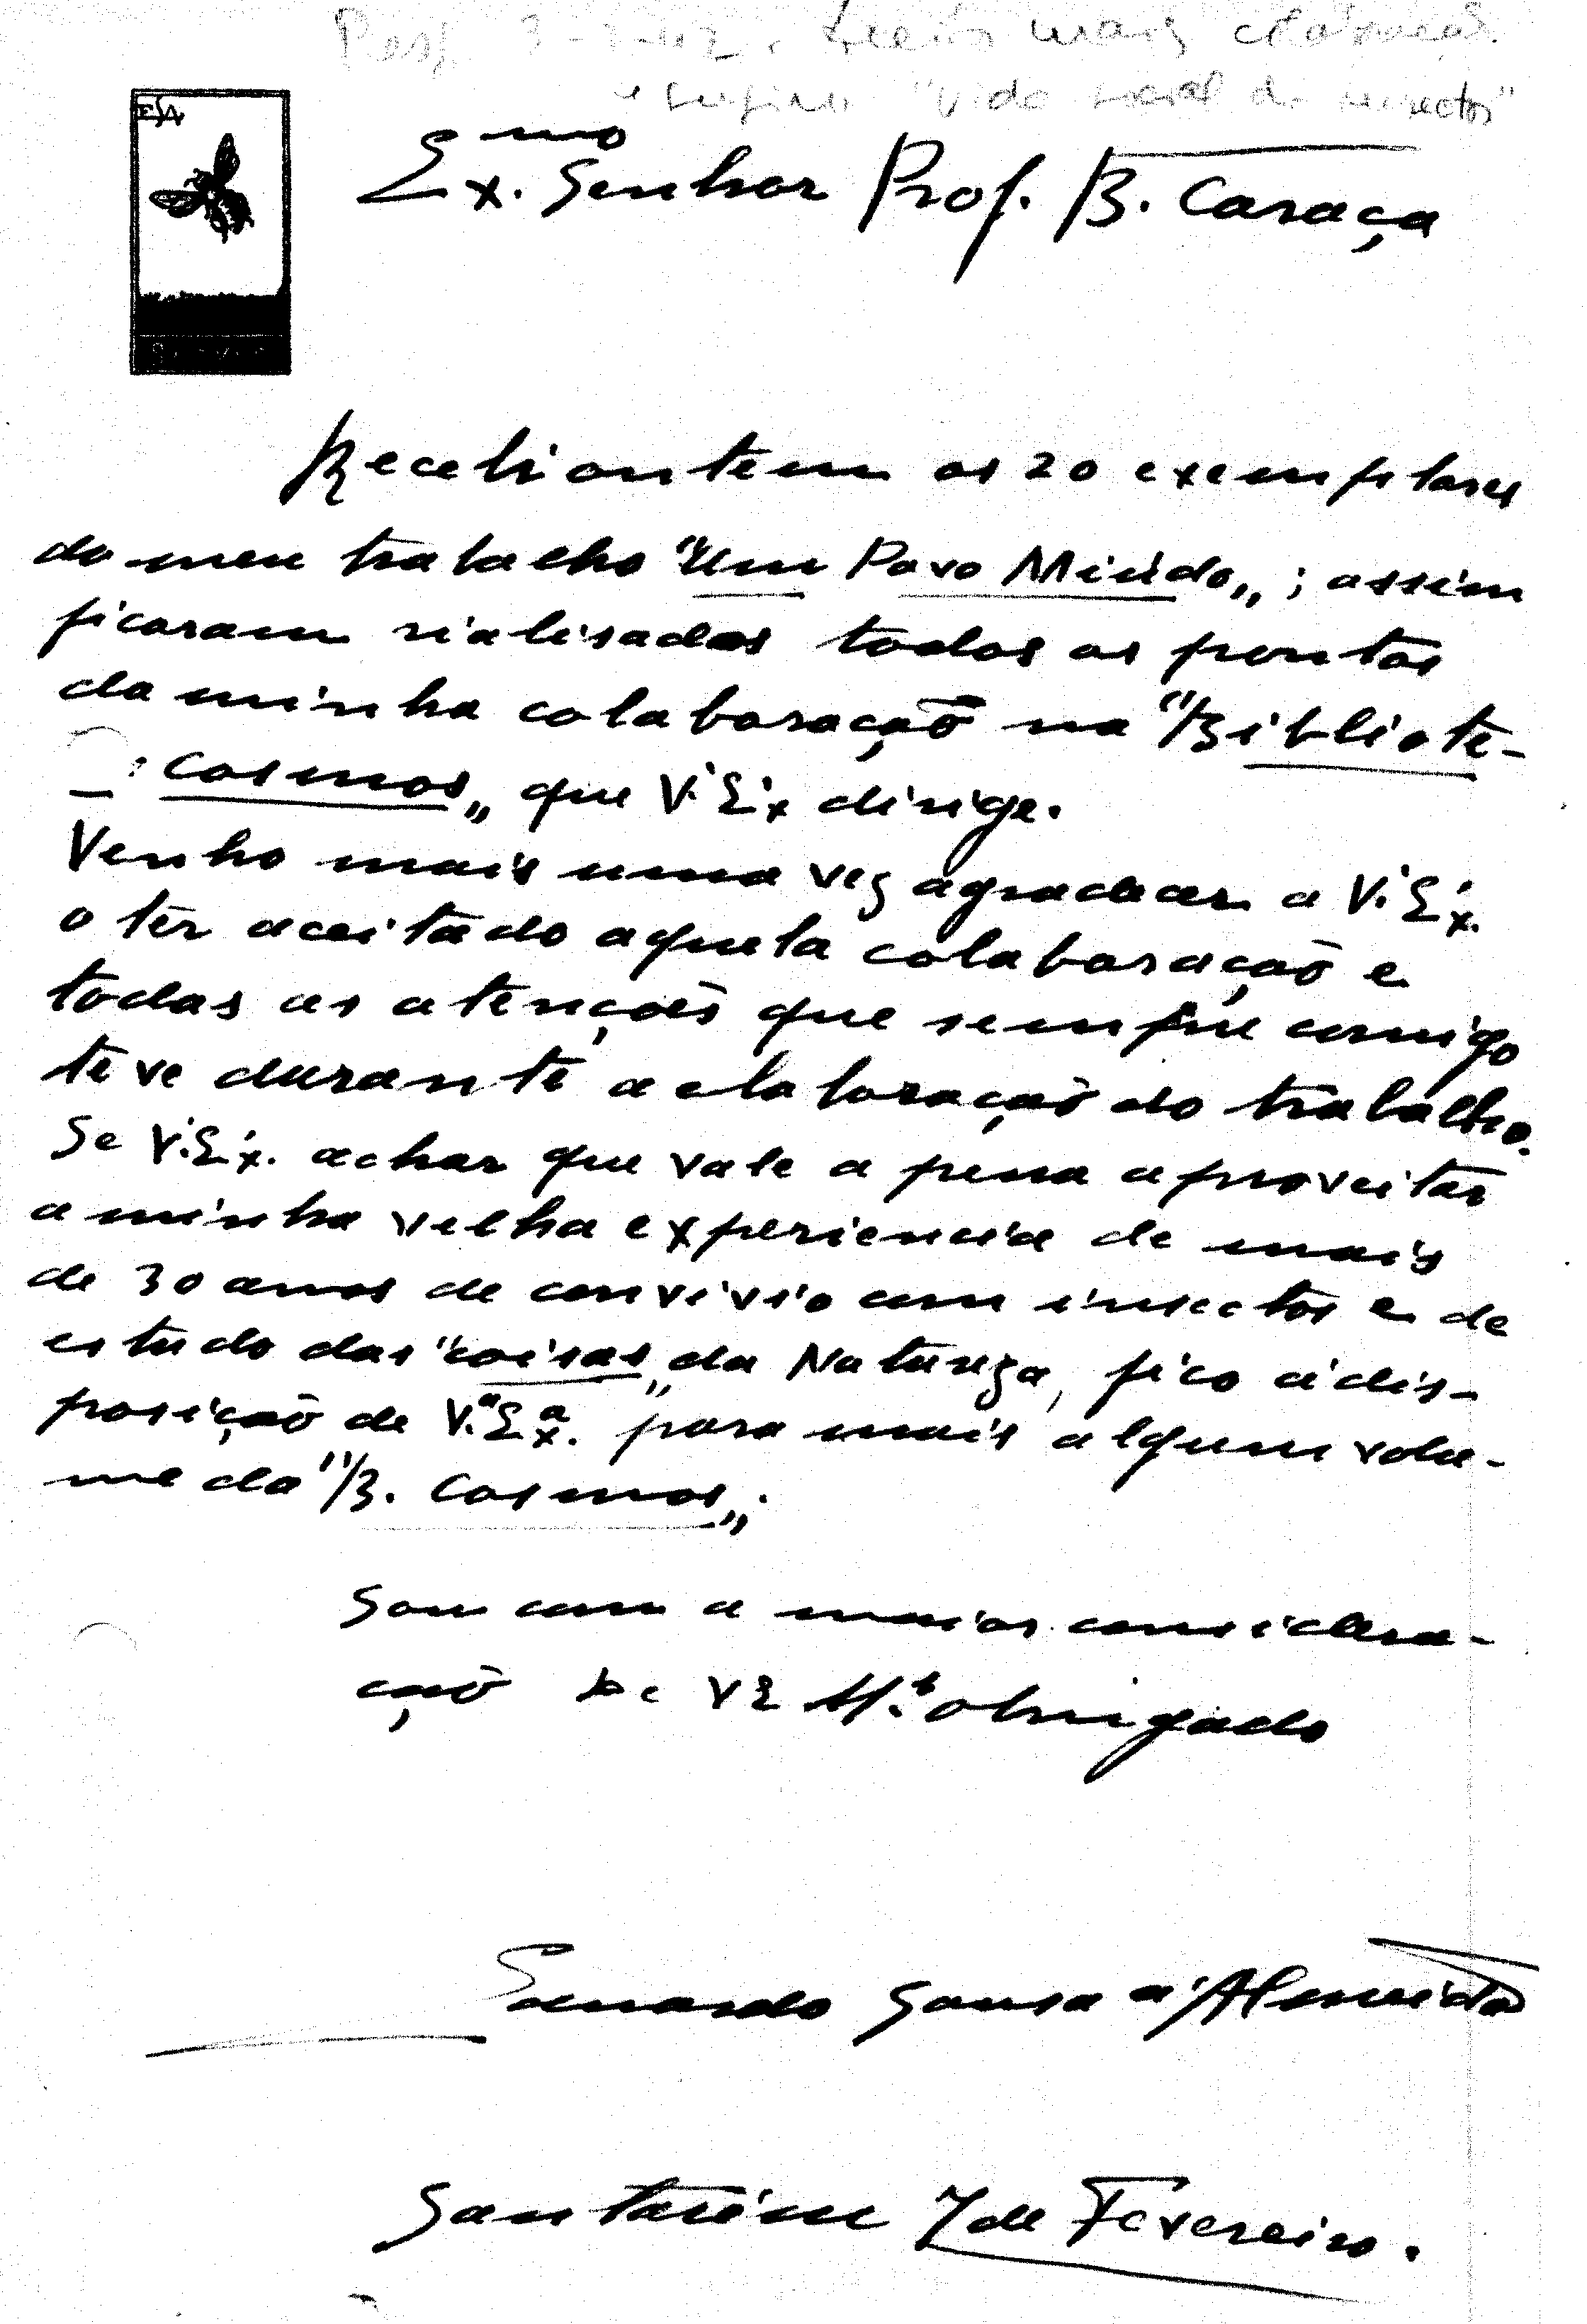 Resp. 3-3-42. Aceito mais colaboração.
e sugiro "Vida social dos insectos"
ESA
Ex.mo Senhor Prof. B. Caraça
Recebi ontem os 20 exemplares
do meu trabalho "Um Povo Miúdo„; assim
ficaram rialisados todos os pontos
da minha colaboração na "Bibliote-
Cosmos„ que V. Ex. dirige.
Venho mais uma vez agradecer a V. Ex.
o têr aceitado aquela colaboração e
todas as atenções que sempre comigo
teve durante a elaboração do trabalho.
Se V. Ex. achar que vale a pena aproveitar
a minha velha experiencia de mais
de 30 anos de convivio com insectos e de
estudo das "coisas„ da Natureza, fico á dis-
posição de V.ª Ex.ª para mais algum volu-
me da "B. Cosmos„.
Sou com a maior considera-
ção De VE M.to obrigado
Eduardo Sousa d'Almeida
Santarém 7 de Fevereiro.